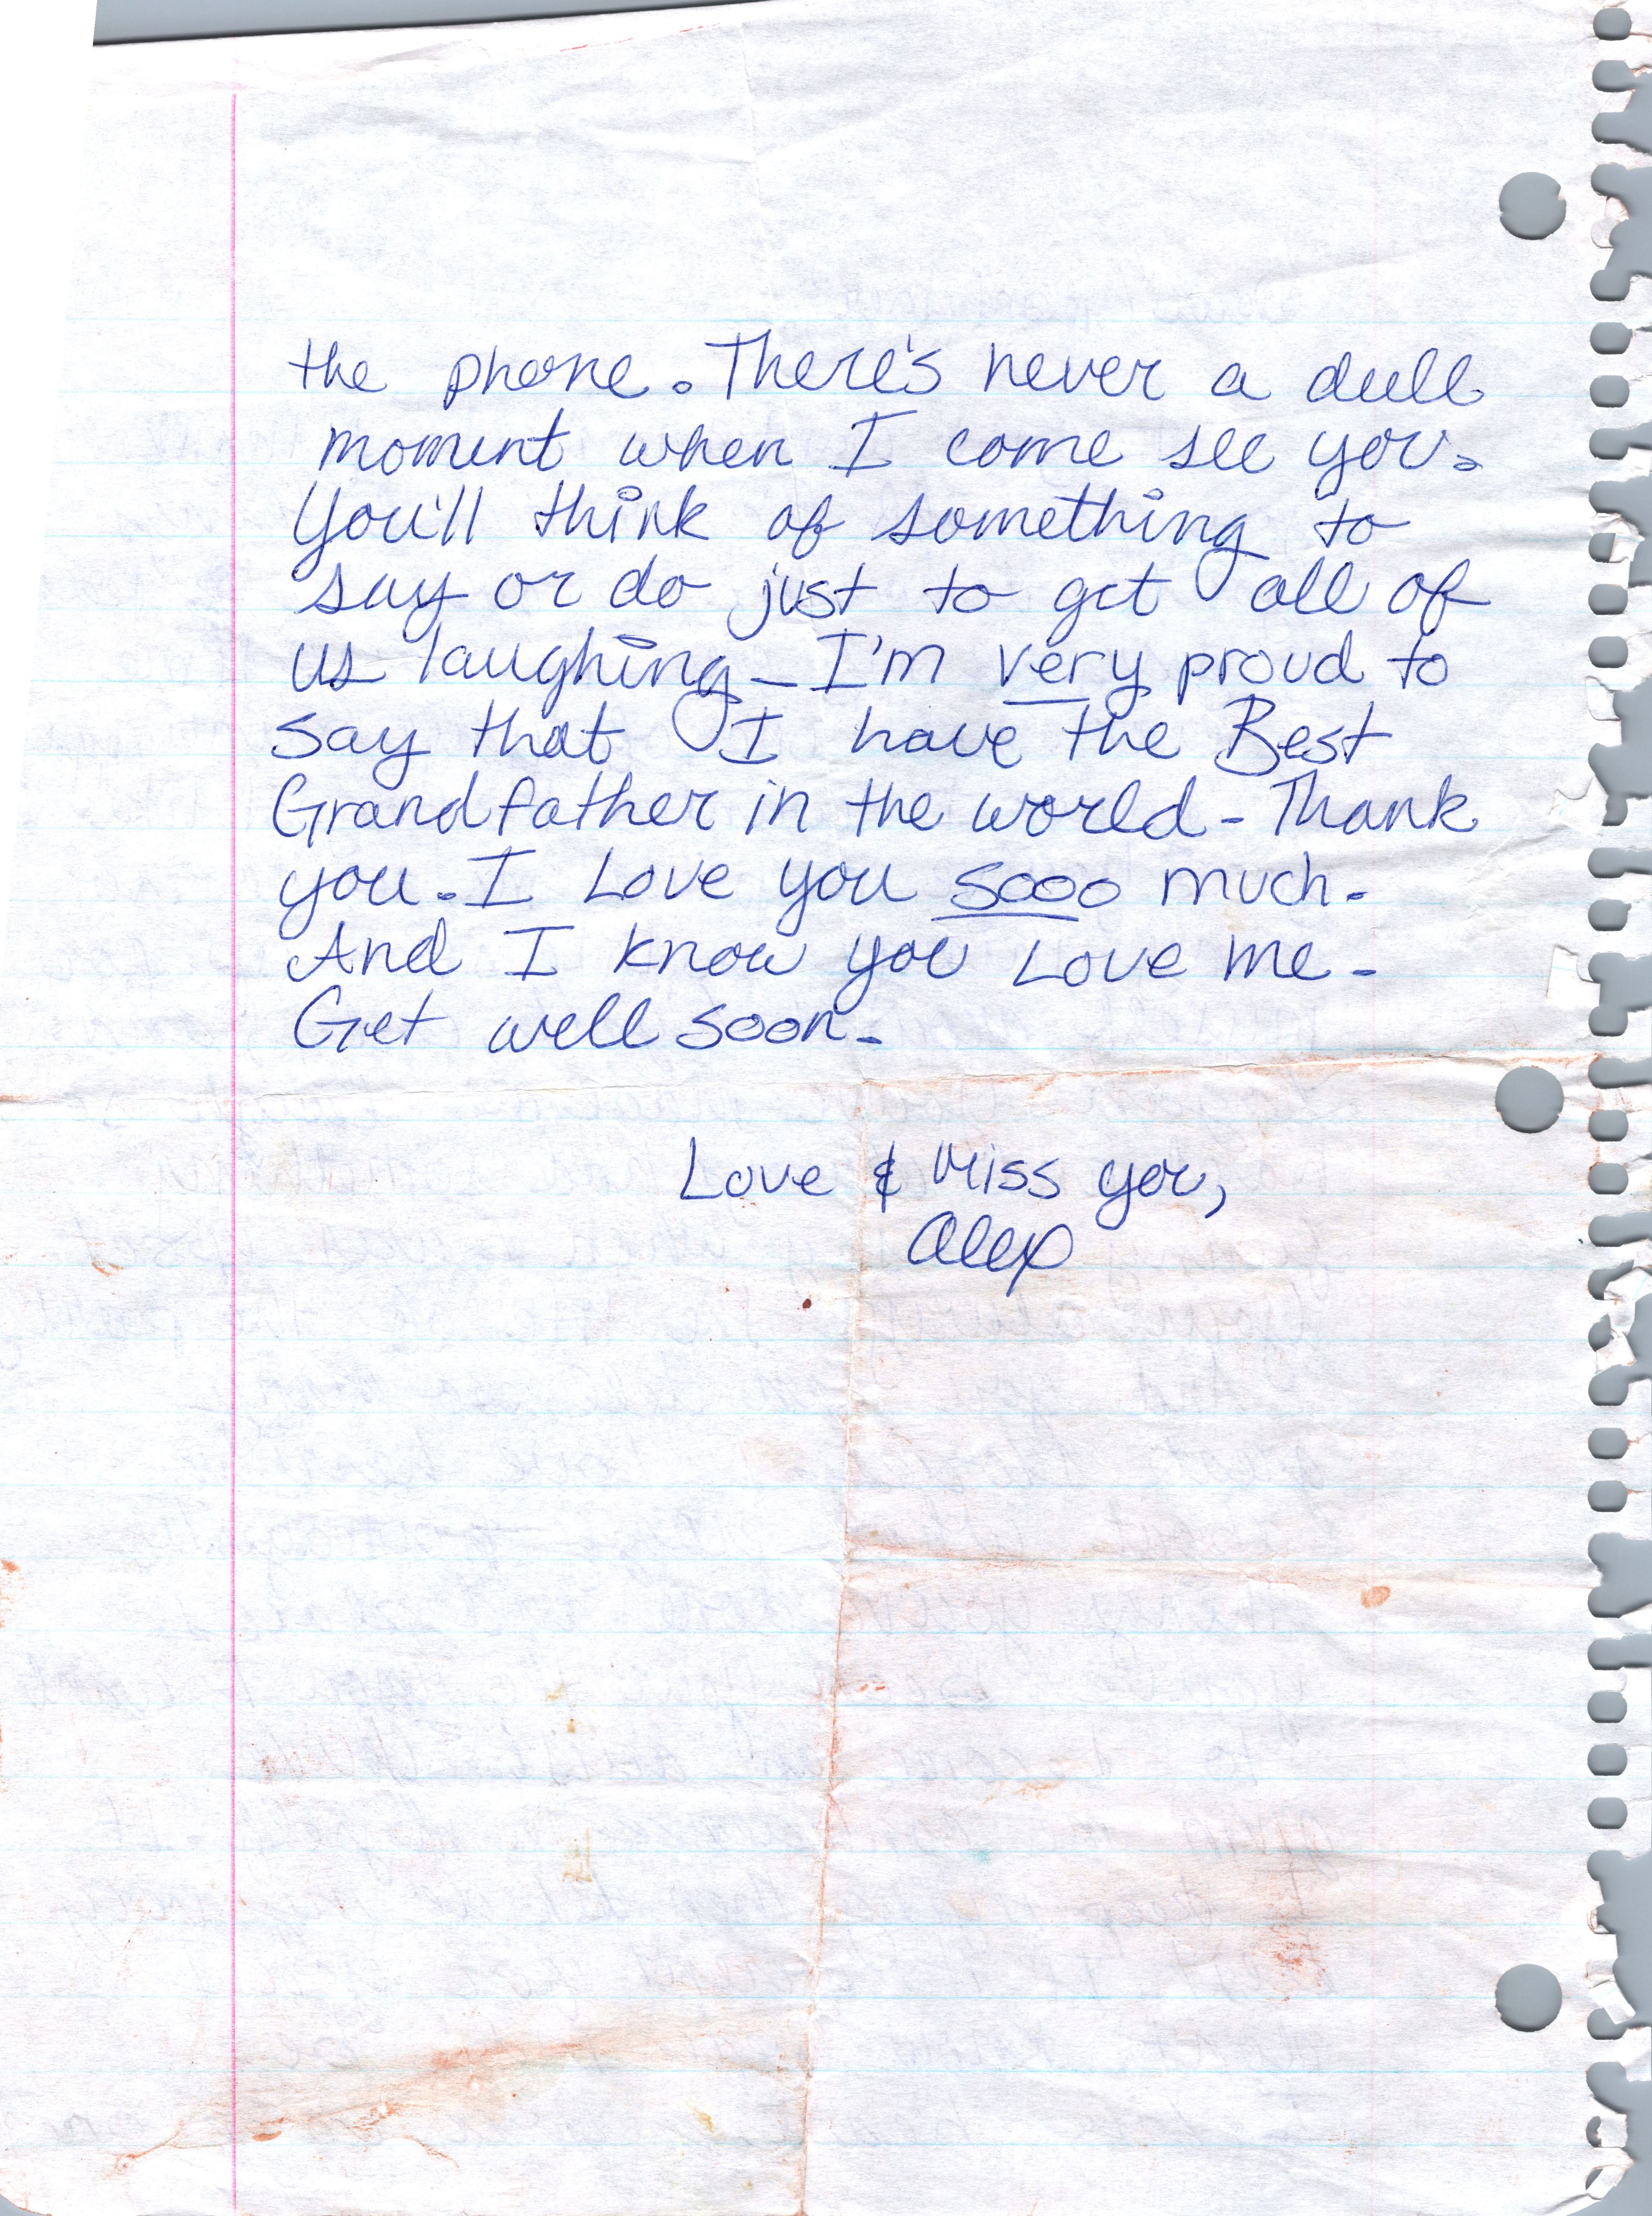 the phone. There's never a dull
moment when I come see you.
You'll think of something to
say or do just to get all of
us laughing - I'm very proud to
say that I have the Best
Grandfather in the world - Thank
you. I Love you sooo much.
And I know you Love me -
Get well soon -
Love & Miss you,
Alex